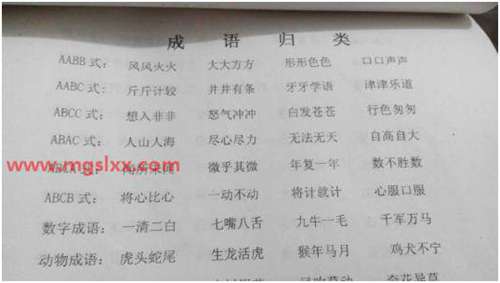 成 语 归 类
AABB 式: 风风火火 大大方方 形形色色 口口声声
AABC 式: 斤斤计较 井井有条 牙牙学语 津津乐道
ABCC 式: 想入非非 怒气冲冲 白发苍苍 行色匆匆
ABAC 式: 人山人海 尽心尽力 无法无天 自高自大
www.mgslxx.com
微乎其微 年复一年 数不胜数
ABCB 式: 将心比心 一动不动 将计就计 心服口服
数字成语: 一清二白 七嘴八舌 九牛一毛 千军万马
动物成语: 虎头蛇尾 生龙活虎 猴年马月 鸡犬不宁
奇花异草